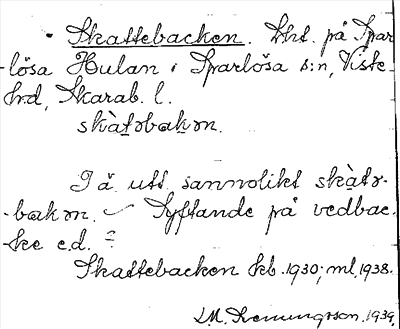 Skattebacken. Lht. på Spar-
lösa Hulan i Sparlösa s:n, Viste
hd, Skarab. l.
skàtəbakən.
Tä utt. sannolikt skàtə-
-bakən. Syftande på vedbac-
-ke e.d.?
Skattebacken kb. 1930; ml. 1938.
1939.